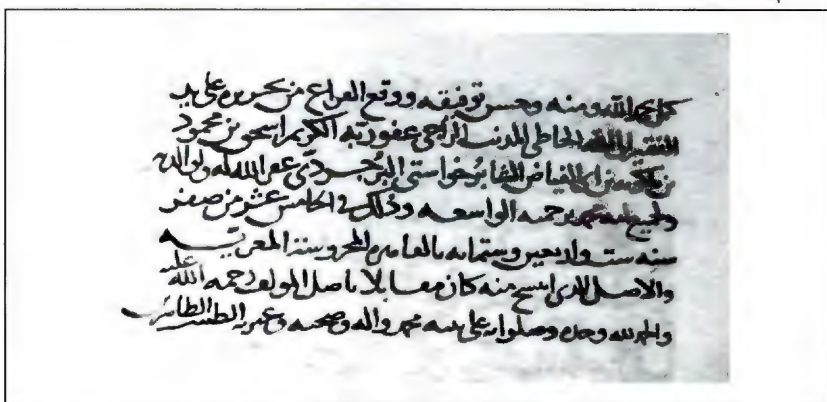 كمل بحمد الله ومنه وحسن توفيقه ووقع الفراغ من تحريره على يد
الفقير الى الله الخاطى المذنب الراجى عفو ربه الكريم اسحق بن محمود
بن بلكويه بن ابى الفياض البروجردى غفر الله له ولوالديه
ولجميع امة محمد برحمته الواسعه وذلك فى الخامس عشر من صفر
سنه ست واربعين وستمايه بالقاهره المحروسه المعزيه
والاصل الذى انتسخ منه كان مقابلا باصل المولف رحمة الله عليه
والحمد لله وحده وصلواته على نبيه محمد واله وصحبه وعترته الطيبين الطاهرين